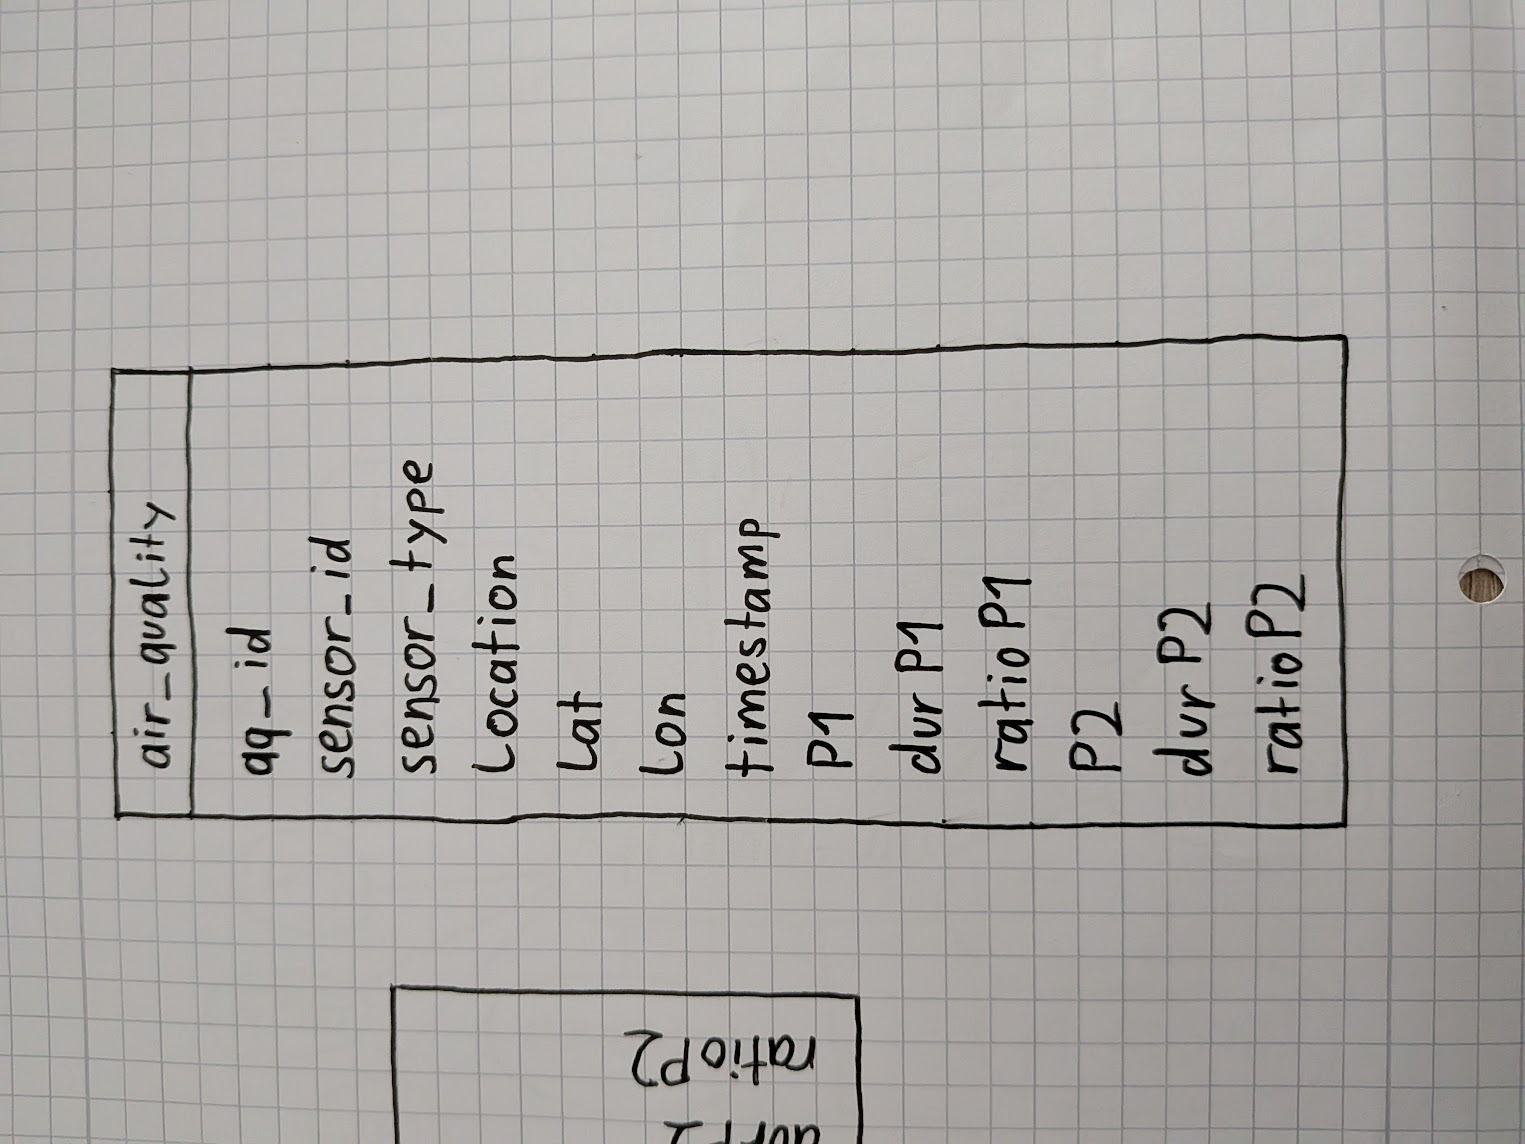 air_quality
aq_id
sensor_id
sensor_type
Location
Lat
Lon
timestamp
P1
durP1
ratioP1
P2
durP2
ratioP2
ratioP2